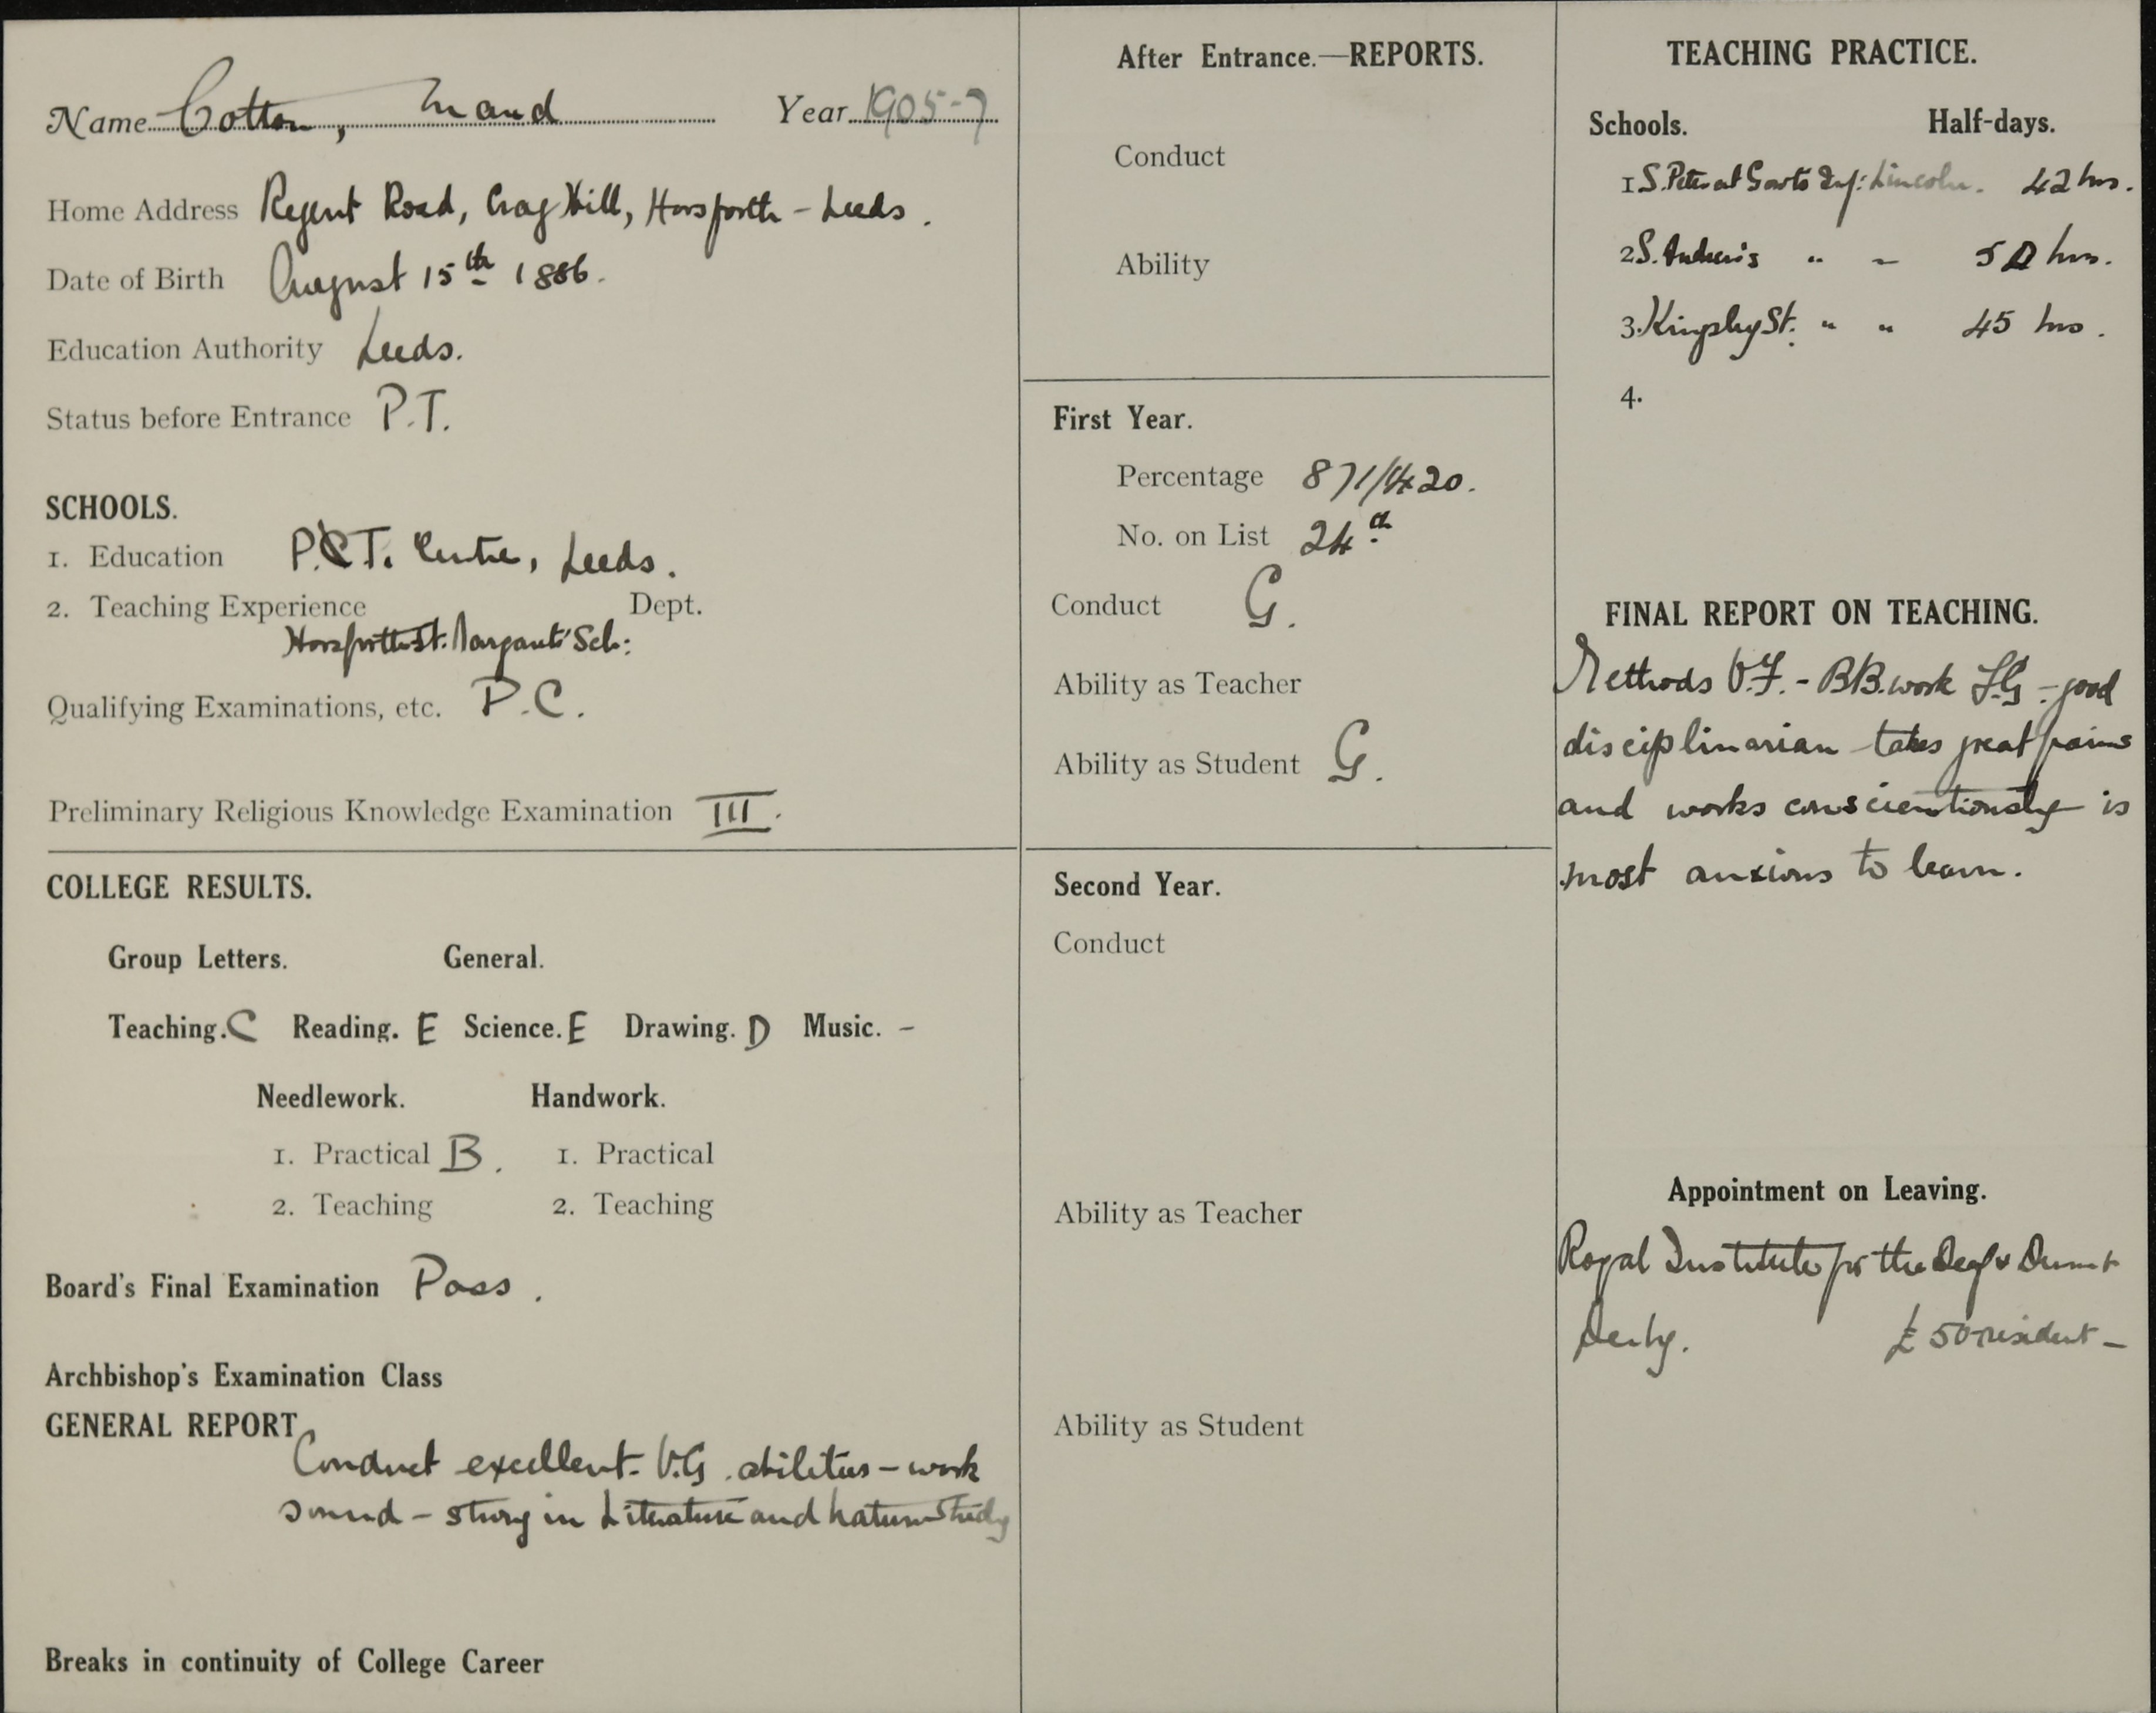 Name Cotton, Maud Year 1905-7
Home Address Regent Road, Crag Hill, Horsforth - Leeds.
Date of Birth August 15th 1886.
Education Authority Leeds.
Status before Entrance P.T.
SCHOOLS.
1. Education P.T. Centre, Leeds.
2. Teaching Experience Dept.
Horsforth St. Margaret's Sch:
Qualifying Examinations, etc. P.C.
Preliminary Religious Knowledge Examination III.
COLLEGE RESULTS.
Group Letters. General.
Teaching. C Reading. E Science. E Drawing. D Music. -
Needlework. Handwork.
1. Practical B. 1. Practical
2. Teaching 2. Teaching
Board's Final Examination Pass.
Archbishop's Examination Class
GENERAL REPORT
Conduct excellent - V.G. abilities - work
sound - strong in Literature and Nature Study
Breaks in continuity of College Career
After Entrance.—REPORTS.
Conduct
Ability
First Year.
Percentage
No. on List 24th
Conduct G.
Ability as Teacher
Ability as Student G.
Second Year.
Conduct
Ability as Teacher
Ability as Student
TEACHING PRACTICE.
Schools. Half-days.
1 S. Peter at Gowts Inf: Lincoln. 42 hrs.
2 S. Andrew's " " 50 hrs.
3. Kingsley St. " " 45 hrs.
4.
FINAL REPORT ON TEACHING.
Methods V.F. - BB. work F.G - good
disciplinarian - takes great pains
and works conscientiously - is
most anxious to learn.
Appointment on Leaving.
Royal Institute for the Deaf & Dumb
Derby. £50 resident -